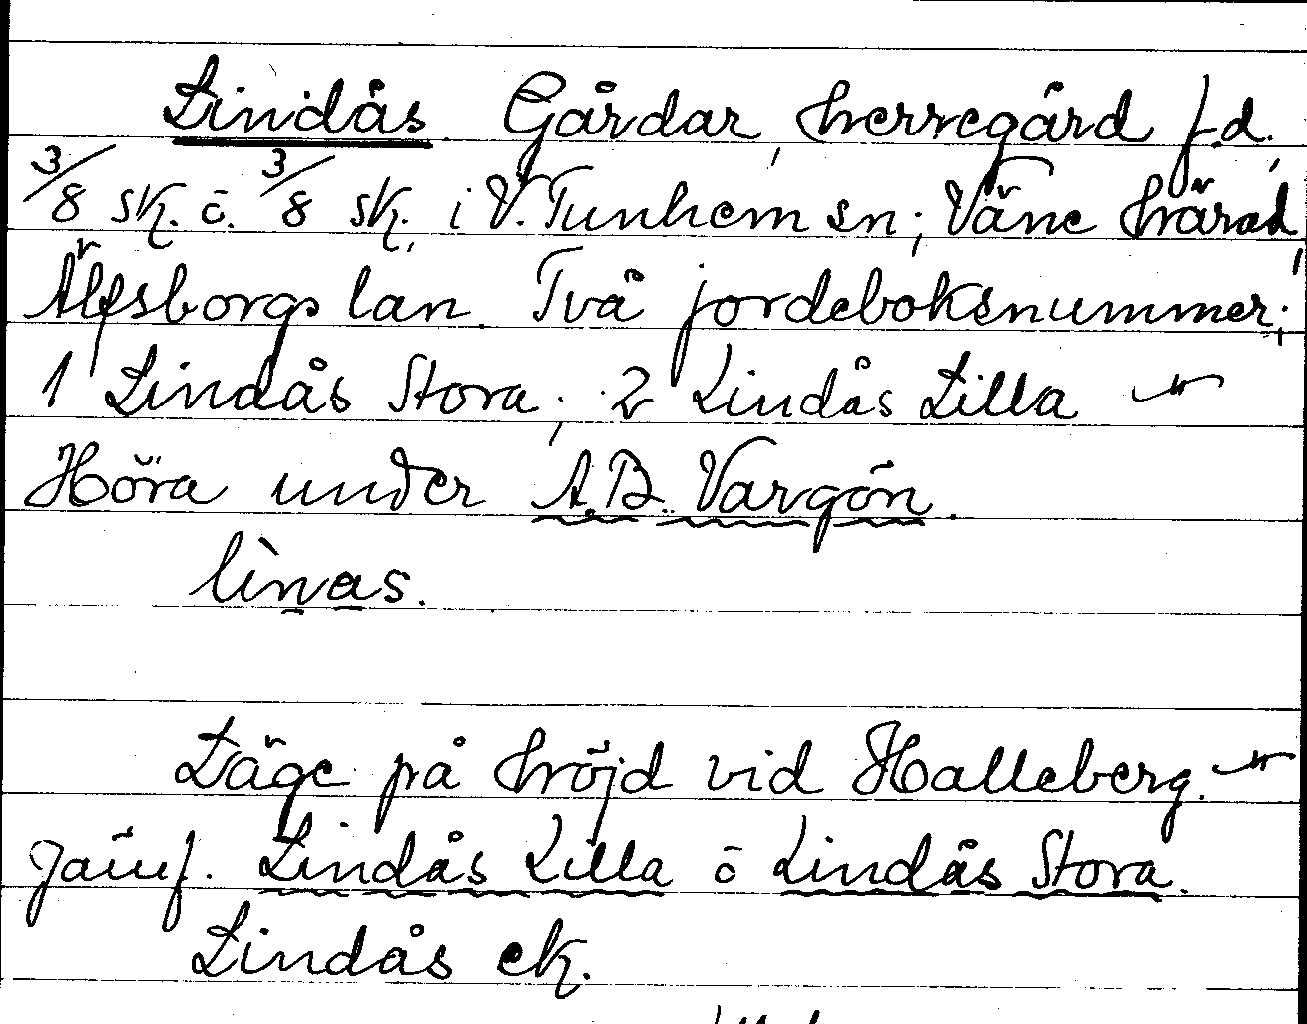 Lindås. Gårdar, herregård f.d.,
3/8 sk. o. 3/8 sk., i V. Tunhem sn; Väne härad,
Älfsborgs län. Två jordeboksnummer;
1 Lindås Stora, 2 Lindås Lilla
Höra under A.B. Vargön.
lìnas.
Läge på höjd vid Halleberg.
Jämf. Lindås Lilla o Lindås Stora.
Lindås ek.